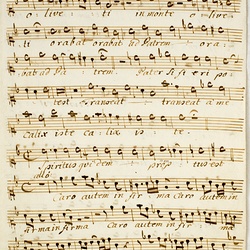 o live ti in monte o live
ti orabat orabat ad Patrem ora
bat ad Pa trem. Pater si fi eri po
test transeat transeat a me
Calix iste ca lix is te.
Spiritus quidem promptus est
Caro autem in fir ma caro autem in
firma caro autem in firma